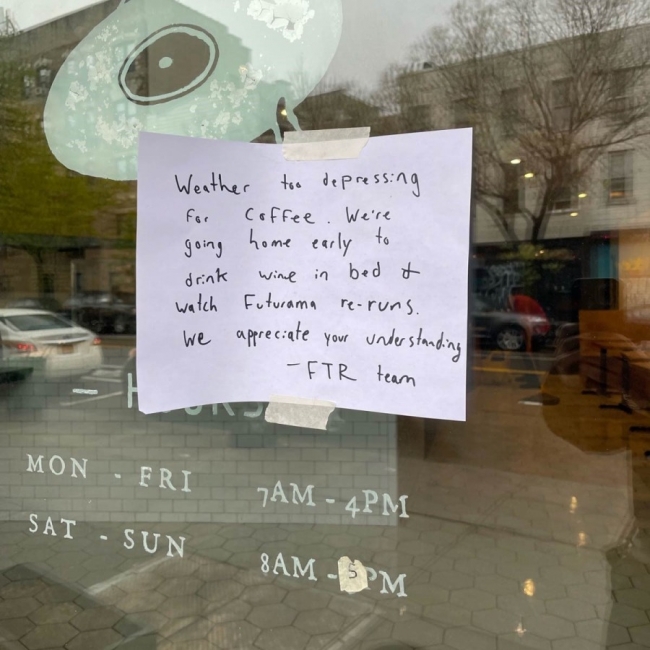 Weather too depressing
for coffee. We're
going home early to
drink wine in bed &
watch Futurama re-runs.
We appreciate your understanding
- FTR team
- HOURS
MON - FRI 7AM - 4PM
SAT - SUN 8AM - 5PM